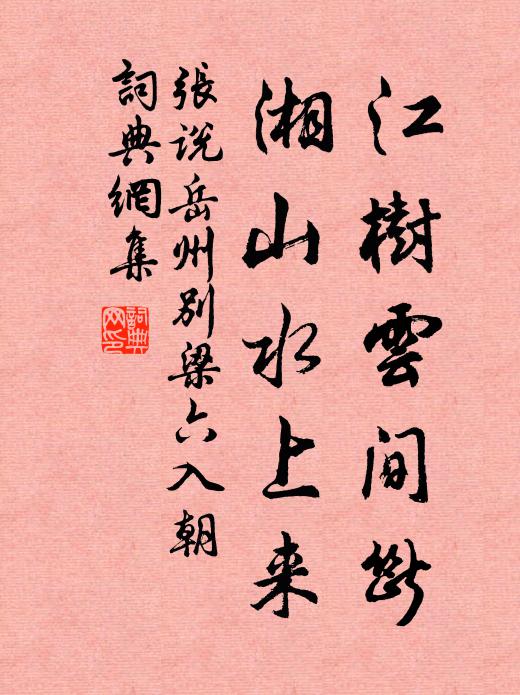 江樹雲間斷
湘山水上来
張說岳州別梁六入朝
詞典網集
詞典网印